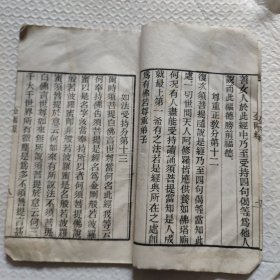 善女人於此經中乃至受持四句偈等爲他人
說而此福德勝前福德
尊重正教分第十二
復次須菩提隨說是經乃至四句偈等當知此
處一切世間天人阿修羅皆應供養如佛塔廟
何況有人盡能受持讀誦須菩提當知是人成
就最上第一希有之法若是經典所在之處即
爲有佛若尊重弟子
如法受持分第十三
爾時須菩提白佛言世尊當何名此經我等云
何奉持佛告須菩提是經名爲金剛般若波羅
蜜以是名字汝當奉持所以者何須菩提佛說
般若波羅蜜即非般若波羅蜜是名般若波羅
蜜須菩提於意云何如來有所說法不須菩提
白佛言世尊如來無所說須菩提於意云何三
千大千世界所有微塵是爲多不須菩提言甚